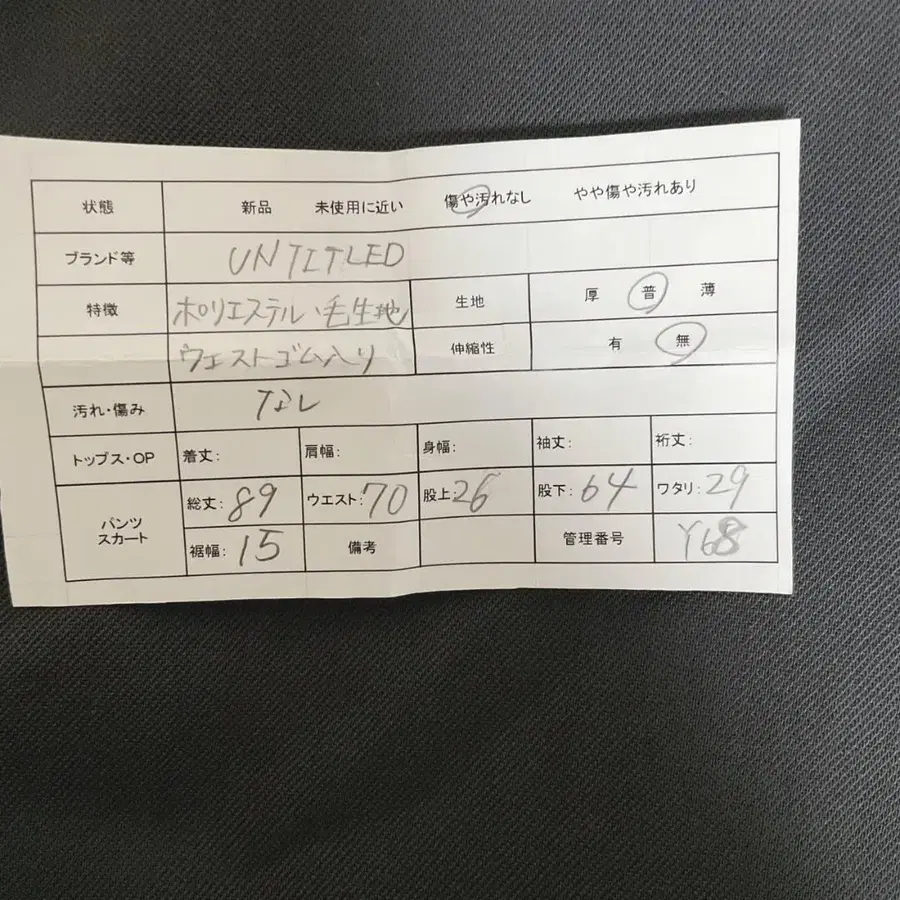 状態 新品 未使用に近い 傷や汚れなし やや傷や汚れあり
ブランド等 UNTITLED
特徴 ポリエステル、毛生地 生地 厚 普 薄
ウエストゴム入り 伸縮性 有 無
汚れ・傷み なし
トップス・OP 着丈: 肩幅: 身幅: 袖丈: 裄丈:
パンツ スカート 総丈:89 ウエスト:70 股上:26 股下:64 ワタリ:29
裾幅:15 備考 管理番号 Y68